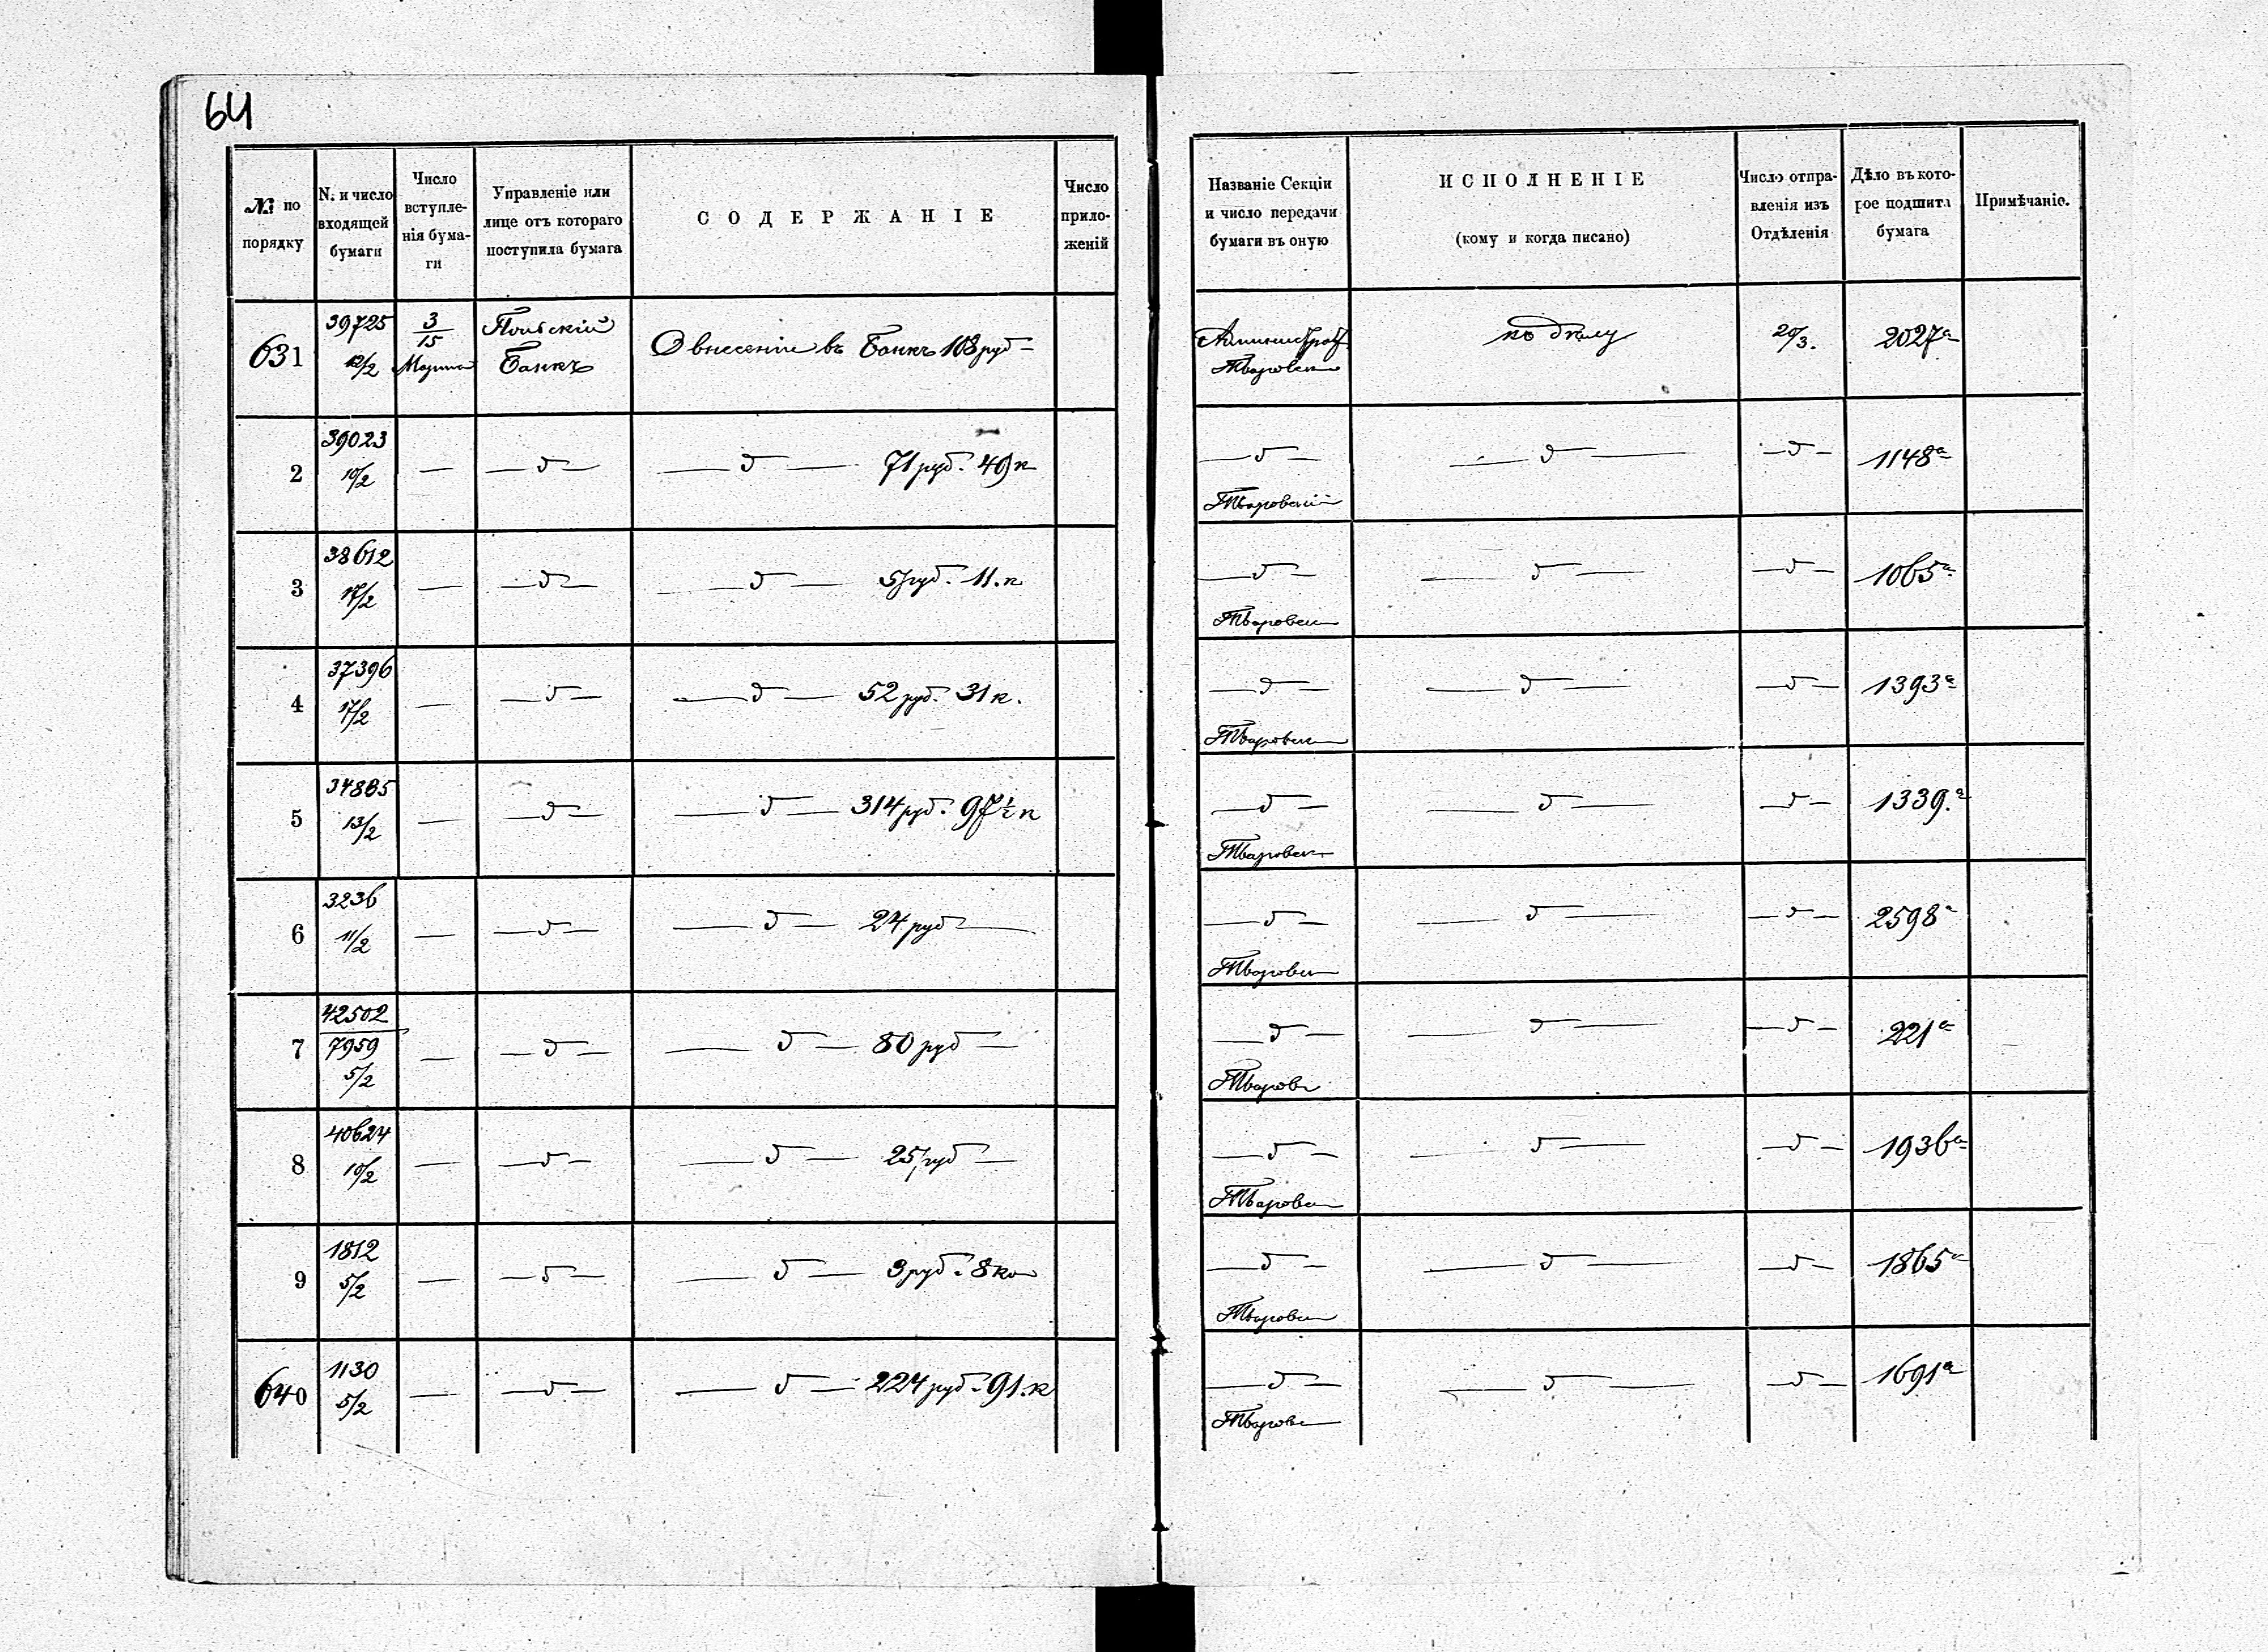 64
№ по порядку
N. и число входящей бумаги
Число вступле-нія бума-ги
Управленіе или лице отъ котораго поступила бумага
СОДЕРЖАНІЕ
Число прило-женій
Названіе Секціи и число передачи бумаги въ оную
ИСПОЛНЕНІЕ
(кому и когда писано)
Число отпра-вленія изъ Отдѣленія
Дѣло въ кото-рое подшита бумага
Примѣчаніе.
631 39725 12/2 3/15 Марта Польскій Банкъ О внесеніи въ Банкъ 108 руб по дѣлу 20/3. 2027а
2 39023 10/2 — — д — — д — 71 руб. 49 к — д — Тваровскій — д — — д — 1148а
3 38612 17/2 — — д — — д — 5 руб. 11. к — д — — д — — д — 1065а
4 37396 17/2 — — д — — д — 52 руб. 31 к. — д — — д — — д — 1393а
5 34885 13/2 — — д — — д — 314 руб. 97 1/2 к — д — — д — — д — 1339.а
6 3236 11/2 — — д — — д — 24 руб — — д — — д — — д — 2598а
7 42502 7959 5/2 — — д — — д — 80 руб — — д — — д — — д — 221а
8 40624 10/2 — — д — — д — 25 руб — — д — — д — — д — 1936а
9 1812 5/2 — — д — — д — 3 руб. 8 ко — д — — д — — д — 1865а
640 1130 5/2 — — д — — д — 224 руб. 91. к — д — — д — — д — 1691а